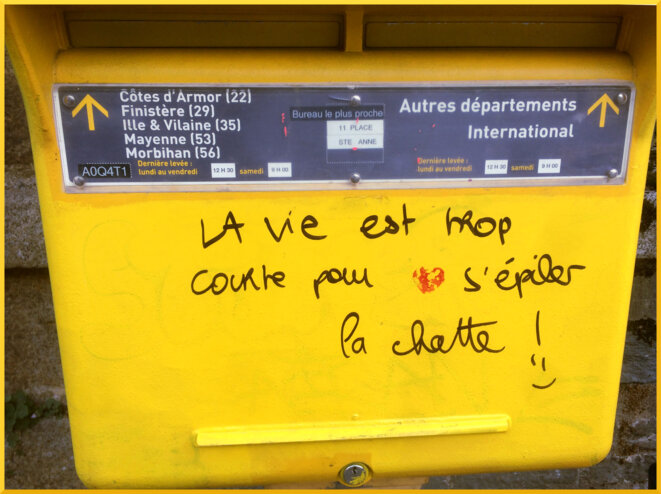 Côtes d'Armor (22)
Finistère (29)
Ille & Vilaine (35)
Mayenne (53)
Morbihan (56)
A0Q4T1
Dernière levée :
lundi au vendredi 12 H 30 samedi 9 H 00
Bureau le plus proche
11 PLACE
STE ANNE
Autres départements
International
Dernière levée :
lundi au vendredi 12 H 30 samedi 9 H 00
LA vie est trop
courte pour s'épiler
la chatte !